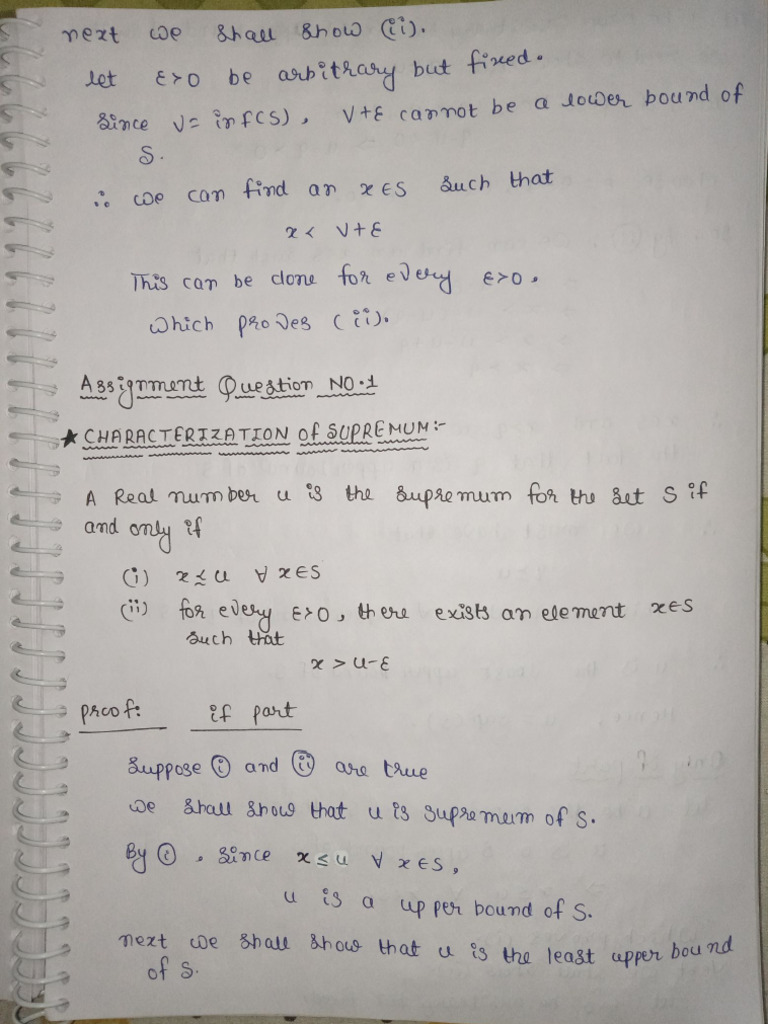 next we shall show (ii).
let ε>0 be arbitrary but fixed.
since V= inf(S), V+ε cannot be a lower bound of
S.
∴ we can find an x∈S such that
x< V+ε
This can be done for every ε>0.
which proves (ii).
Assignment Question NO.1
★ CHARACTERIZATION of SUPREMUM:-
A Real number u is the supremum for the set S if
and only if
(i) x≤u ∀ x∈S
(ii) for every ε>0, there exists an element x∈S
such that
x > u-ε
proof: if part
suppose (i) and (ii) are true
we shall show that u is supremum of S.
By (i), since x≤u ∀ x∈S,
u is a upper bound of S.
next we shall show that u is the least upper bound
of S.